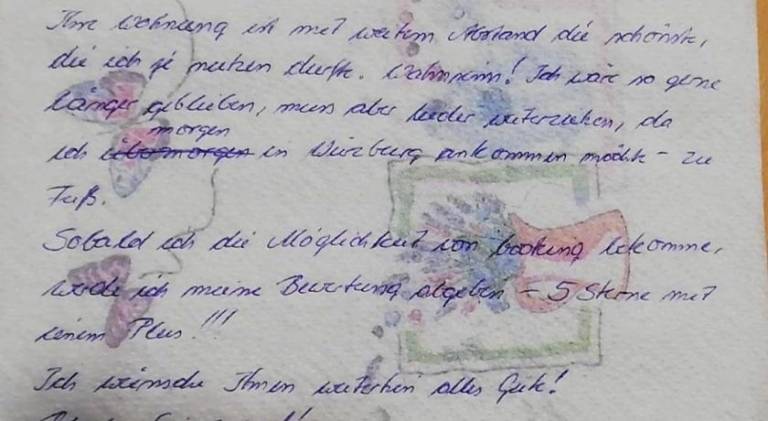 Ihre Wohnung ist mit weitem Abstand die schönste,
die ich je nutzen durfte. Wahnsinn! Ich wär so gerne
länger geblieben, muss aber leider weiterziehen, da
morgen
ich übermorgen in Würzburg ankommen möchte - zu
Fuß.
Sobald ich die Möglichkeit von booking bekomme,
werde ich meine Bewertung abgeben - 5 Sterne mit
einem Plus!!!
Ich wünsche Ihnen weiterhin alles Gute!